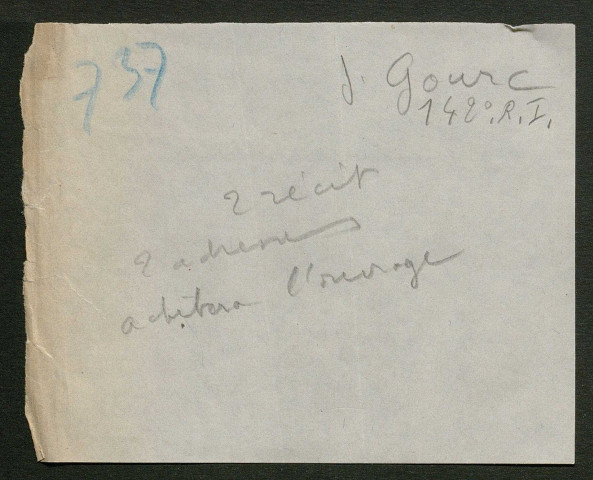 737
J. Gourc
142e. R. I.
2 récit
2 adresses
achètera l'ouvrage